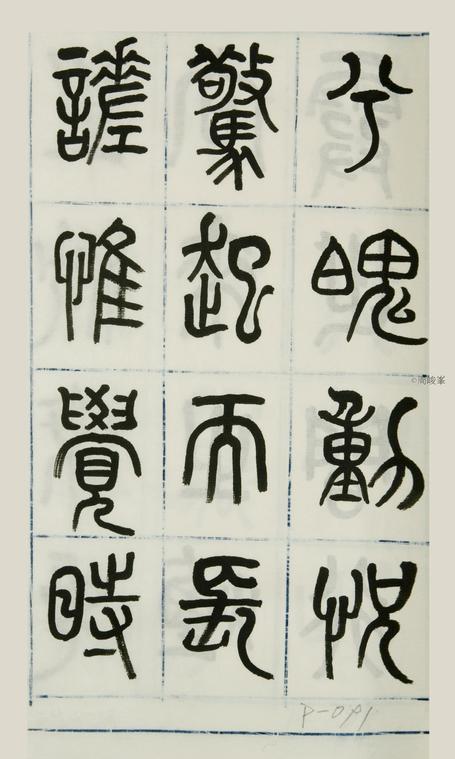 兮魄動怳
驚起而長
謹惟覺時
©周峻峯
P-091